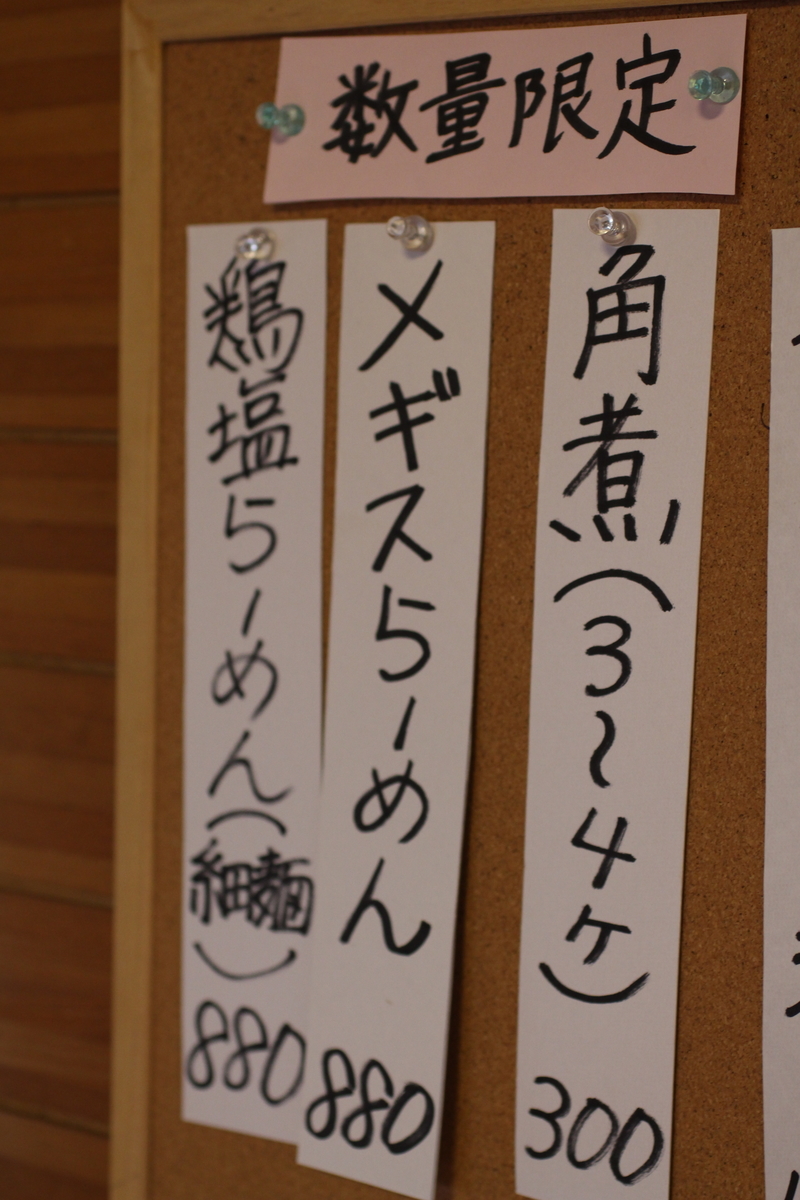 数量限定
角煮(3〜4ヶ)300
メギスらーめん 880
鶏塩らーめん(細麺)880